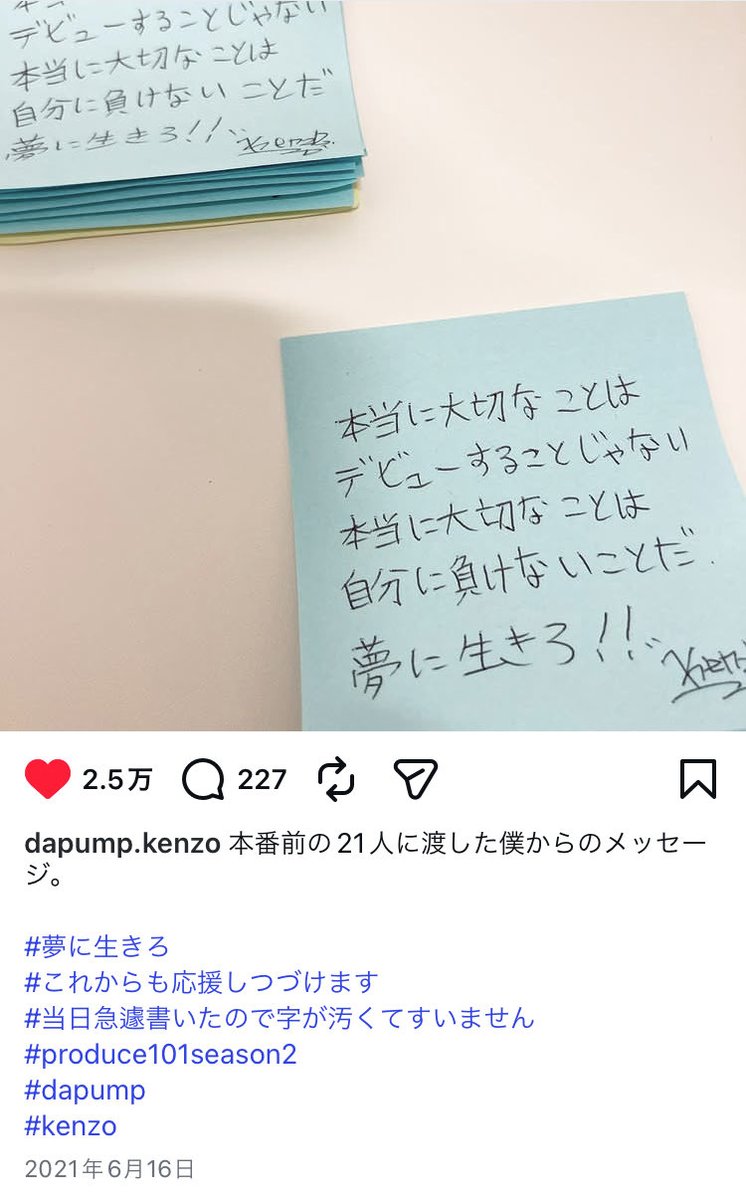 デビューすることじゃない
本当に大切なことは
自分に負けないことだ
夢に生きろ!!
本当に大切なことは
デビューすることじゃない
本当に大切なことは
自分に負けないことだ.
夢に生きろ!!
2.5万 227
dapump.kenzo 本番前の21人に渡した僕からのメッセー
ジ。
#夢に生きろ
#これからも応援しつづけます
#当日急遽書いたので字が汚くてすいません
#produce101season2
#dapump
#kenzo
2021年6月16日